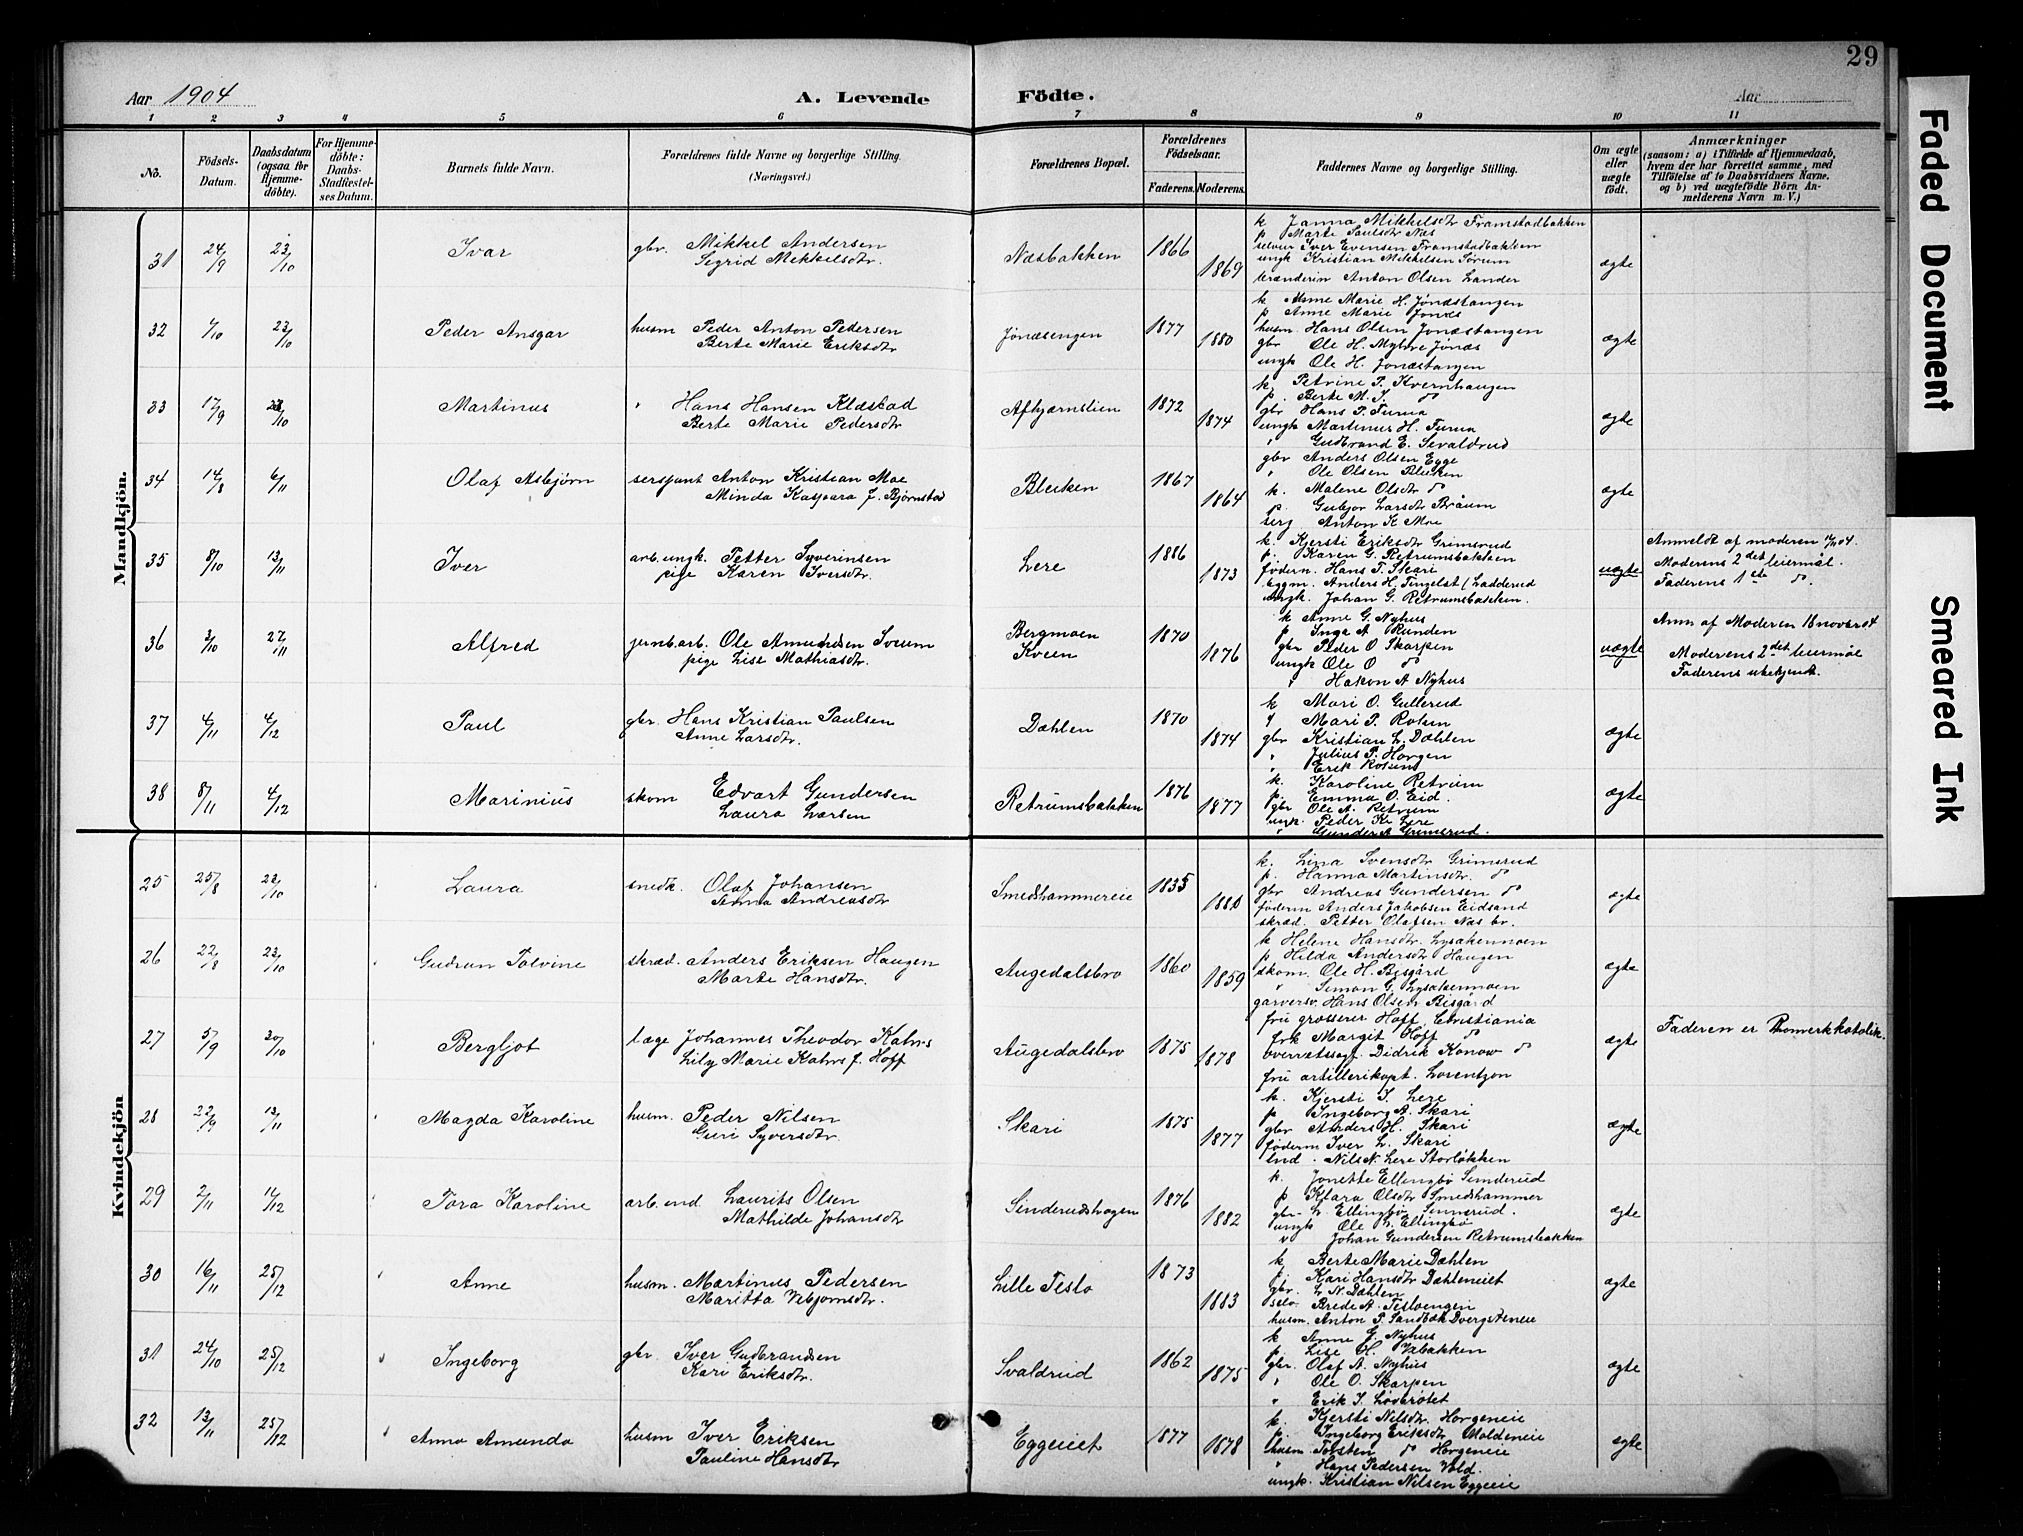 29
Aar 1904 A. Levende Födte. Aar
1 2 3 4 5 6 7 8 9 10 11
No. Födsels-Datum. Daabsdatum (ogsaa for Hjemmedöbte). For Hjemmedöbte: Daabs-Stadfæstelses Datum. Barnets fulde Navn. Forældrenes fulde Navne og borgerlige Stilling. (Næringsvei.) Forældrenes Bopæl. Forældrenes Födselsaar. Faderens. Moderens. Faddernes Navne og borgerlige Stilling. Om ægte eller uægte födt. Anmærkninger (saasom: a) i Tilfælde af Hjemmedaab, hvem der har forrettet samme, med Tilföielse af to Daabsvidners Navne. og b) ved uægtefödte Börn Anmelderens Navn m. V.)
Mandkjön.
31 24/9 23/10 Ivar gbr. Mikkel Andersen Næsbakken 1866 k Janna Mikkelsdtr Framstadbakken
Sigrid Mikkelsdtr. 1869 p Marte Paulsdtr Næs
Iver Evensen Framstadbakken ægte
ungk Kristian Mikkelsen Sørum
Anton Olsen Lander
32 /10 23/10 Peder Ansgar husm Peder Anton Pedersen Jønæsengen 1877 k Anne Marie H. Jønæstangen
Berte Marie Eriksdtr 1880 p Anne Marie Jønæs
husm. Hans Olsen Jonæstangen ægte
gbr Ole H. Myhre Jønæs
ungk Ole H. Jonæstangen
33 17/9 23/10 Martinus " Hans Hansen Klæstad Afbjørnslien 1872 k. Petrine P. Kvernhaugen
Berte Marie Pedersdtr 1874 p. Berte M. do
gbr Hans P. Tuma ægte
ungk Martinus H. Tuma
" Gudbrand E. Sevaldrud
34 14/8 6/11 Olaf Asbjørn sersjant Anton Kristian Moe Bleiken 1867 gbr Anders Olsen Egge
Minda Kaspara f. Bjørnstad 1864 " Ole Olsen Bleiken
k. Malene Olsdtr do ægte
p. Gubjor Larsdtr Bråum
serg Anton K Moe
35 8/10 13/11 Iver arb. ungk. Petter Syverinsen Lere 1886 k. Kjersti Eriksdtr Grimsrud Anmeldt af moderen
pige Karen Iversdtr. 1873 p. Karen G. Retrumsbakken Moderens 2det leiermål.
føderm. Hans T. Skari uægte Faderens 1ste do.
Anders H. Tingelst (Ladderud
ungk. Johan G. Retrumsbakken.
36 3/10 27/11 Alfred jernb.arb. Ole Amundsen Sorum Bergmoen 1870 k Anne G. Nyhus Anm af Moderen 18 novbr 04
pige Lise Mathiasdtr. Kveen 1876 p Inga A Runden
gbr Peder O Skarpen uægte Moderens 2det leiermål
ungk Ole O do Faderens ubekjendt.
" Hakon A Nyhus
37 4/11 4/12 Paul gbr. Hans Kristian Paulsen Dæhlen 1870 k Mari O. Gullerud
Anne Larsdtr. 1874 Mari P. Rotem
gbr Kristian L. Dæhlen ægte
" Julius P. Horgen
" Erik
38 8/11 4/12 Marinius skom Edvart Gundersen Retrumsbakken 1876 k. Karoline Retrum
Laura Larsen 1877 p. Emma O. Eid.
gbr Ole A. Retrum ægte
ungk. Peder K. Lere
" Gunder A Grimsrud.
Kvindekjön
25 25/8 23/10 Laura snedk. Olaf Johansen Smedshammereie 1835 k. Lina Svensdtr Grimsrud
Anna Andreasdtr 1880 p. Hanna Martinsdtr. do
gbr Andreas Gundersen do ægte
føderm Anders Jakobsen Eidsand
skræd. Petter Olafsen Næs br.
26 22/8 23/10 Gudrun Tolvine skræd. Anders Eriksen Haugen Augedalsbro 1860 k Helene Hansdtr. Lysakermoen
Marte Hansdtr. 1859 p Hilda Andersdtr Haugen
skom. Ole H. Bisgård ægte
" Simon G. Lysakermoen
garversv. Hans Olsen Bisgård
27 5/9 30/10 Bergljot læge Johannes Theodor Kahrs Augedalsbro 1875 fru grosserer Hoff Christiania Faderen er Romerskkatolik.
Lily Marie Kahrs f. Hoff 1878 frk Margit Hoff do
overretssagf. Didrik Konow do ægte
fru artillerikapt. Lorentzon
28 22/9 13/11 Magda Karoline husm. Peder Nilsen Skari 1875 k. Kjersti I. Lere
Guri Syversdtr. 1877 p Ingeborg A. Skari
gbr Anders H. Skari ægte
føderm Iver L. Skari
Ind. Nils N. Lere Storløkken
29 2/11 11/12 Tora Karoline arb. ind. Laurits Olsen Sinderudshagen 1876 k. Jonette Ellingbø Sinderud
Mathilde Johansdtr 1882 p Klara Olsdtr Smedshammer
gbr L Ellingbø Sinnerud. ægte
ungk Ole L. Ellingbø
" Johan Gundersen Retrumsbakken
30 16/11 25/12 Anne husm. Martinus Pedersen Lille Teslo 1873 k Berte Marie Dæhlen
Maritta Vebjørnsdtr. 1883 p. Kari Hansdtr Dæhleneiet
gbr. L N. Dæhlen ægte
selv. Brede A. Testoengen
husm. Anton P. Sandbæk Dvergsteneie
31 24/10 25/12 Ingeborg gbr. Iver Gudbrandsen Svaldrud 1862 k Anne G. Nyhus
Kari Eriksdtr. 1875 p. Lise H. Vabakken
gbr. Olaf A. Nyhus ægte
" Ole O. Skarpen
" Erik I. Løvbråtet
32 13/11 25/12 Anna Amunda husm Iver Eriksen Eggeiet 1877 k. Kjersti Nilsdtr. Horgeneie
Pauline Hansdtr 1878 p. Ingeborg Eriksdtr Moldeneie
husm. Torsten do Horgeneie ægte
" Hans Pedersen Vold.
ungk. Kristian Nilsen Eggeeie
Faded Document
Smeared Ink